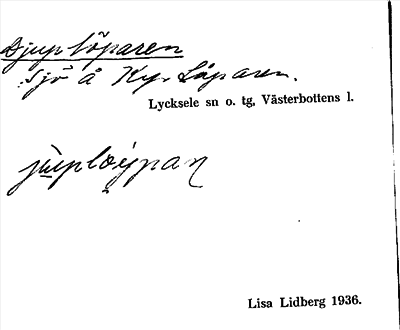 Djuplöparen
Sjö å Kyrklöparen.
Lycksele sn o. tg, Västerbottens l.
Lisa Lidberg 1936.